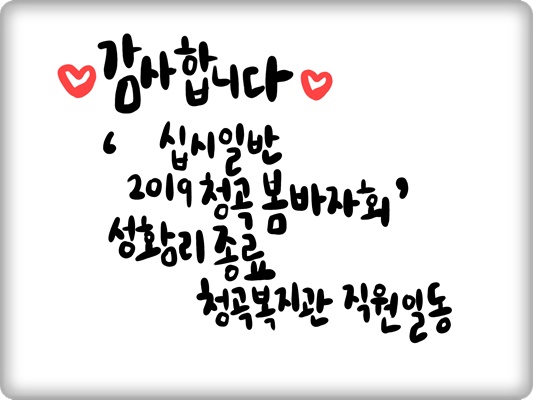 감사합니다
‘ 십시일반
2019 청곡 봄바자회’
성황리 종료
청곡복지관 직원일동